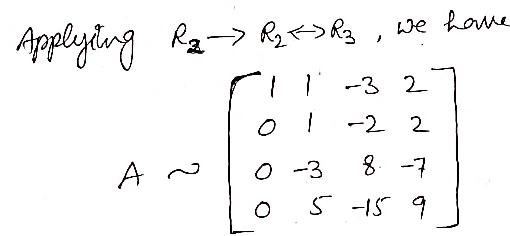 Applying R2 → R2 ↔ R3 , we have
A ~ [1 1 -3 2
0 1 -2 2
0 -3 8 -7
0 5 -15 9]